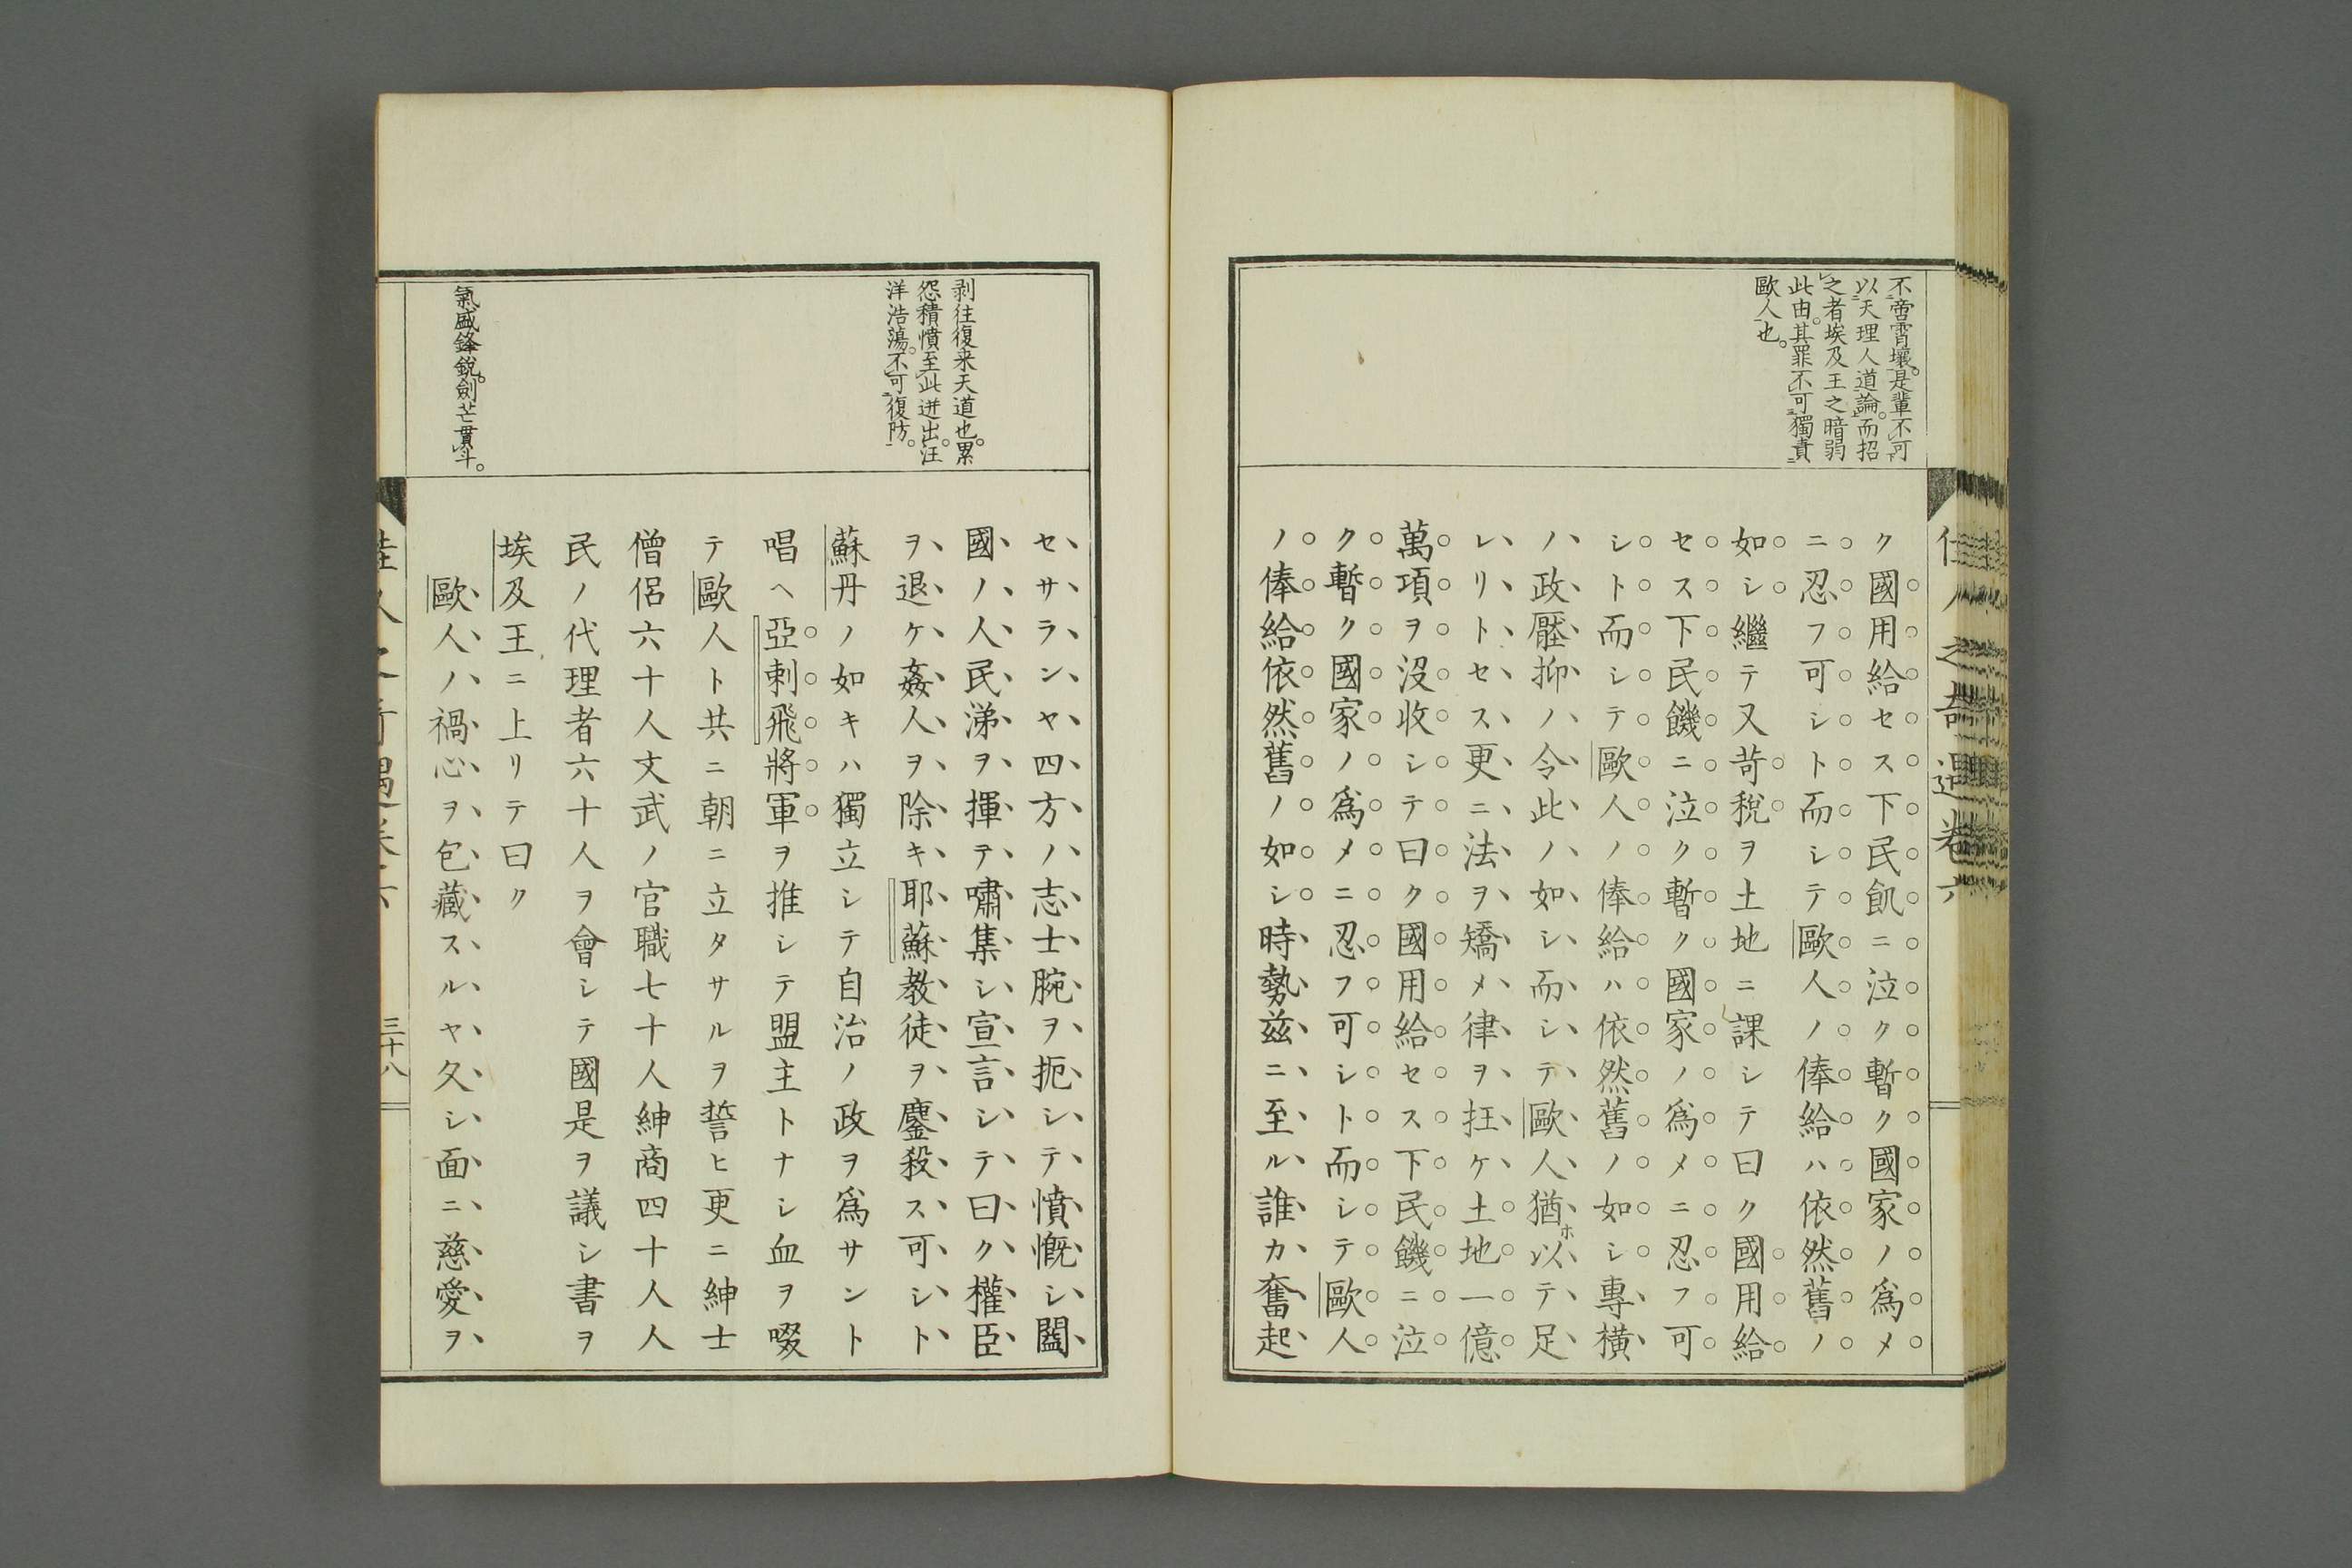 不啻霄壤。是輩不可
以天理人道論。而招
之者埃及王之暗弱
此由。其罪不可獨責
歐人也。
ク國用給セス下民飢ニ泣ク暫ク國家ノ爲メ
ニ忍フ可シト而シテ歐人ノ俸給ハ依然舊ノ
如シ繼テ又苛稅ヲ土地ニ課シテ曰ク國用給
セス下民饑ニ泣ク暫ク國家ノ爲メニ忍フ可
シト而シテ歐人ノ俸給ハ依然舊ノ如シ專橫
ノ政壓抑ノ令此ノ如シ而シテ歐人猶ホ以テ足
レリトセス更ニ法ヲ矯メ律ヲ抂ケ土地一億
萬項ヲ沒收シテ曰ク國用給セス下民饑ニ泣
ク暫ク國家ノ爲メニ忍フ可シト而シテ歐人
ノ俸給依然舊ノ如シ時勢茲ニ至ル誰カ奮起
剥往復來天道也。累
怨積憤至此迸出。汪
洋浩蕩。不可復防。
氣盛鋒銳。劍芒貫斗。
セサランヤ四方ノ志士腕ヲ扼シテ憤慨シ闔
國ノ人民涕ヲ揮テ嘯集シ宣言シテ曰ク權臣
ヲ退ケ姦人ヲ除キ耶蘇教徒ヲ鏖殺ス可シト
蘇丹ノ如キハ獨立シテ自治ノ政ヲ爲サント
唱ヘ亞剌飛將軍ヲ推シテ盟主トナシ血ヲ啜
テ歐人ト共ニ朝ニ立タサルヲ誓ヒ更ニ紳士
僧侶六十人文武ノ官職七十人紳商四十人人
民ノ代理者六十人ヲ會シテ國是ヲ議シ書ヲ
埃及王ニ上リテ曰ク
歐人ノ禍心ヲ包藏スルヤ久シ面ニ慈愛ヲ
三十八